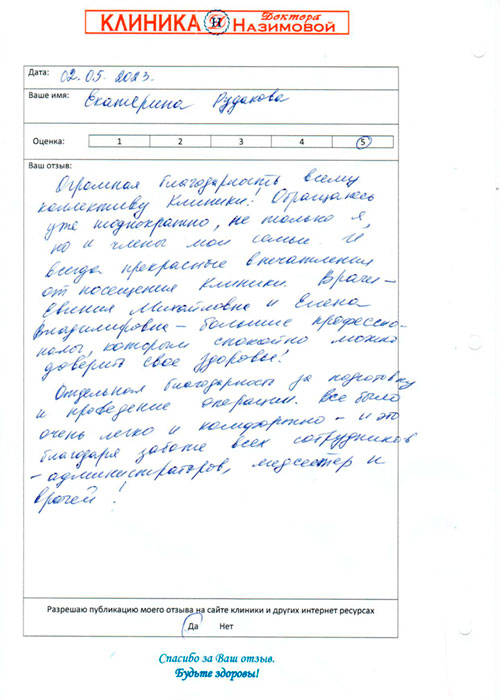 КЛИНИКА Доктора Назимовой
Дата: 02.05.2023.
Ваше имя: Екатерина Рудакова
Оценка: 1 2 3 4 5
Ваш отзыв:
Огромная благодарность всему
коллективу Клиники! Обращаюсь
уже неоднократно, не только я,
но и члены моей семьи. И
всегда прекрасные впечатления
от посещения клиники. Врачи –
Евгения Михайловна и Елена
Владимировна – большие професси-
оналы, которым спокойно можно
доверить свое здоровье!
Отдельная благодарность за подготовку
и проведение операции. Все было
очень легко и комфортно – и это
благодаря заботе всех сотрудников
– администраторов, медсестер и
врачей!
Разрешаю публикацию моего отзыва на сайте клиники и других интернет ресурсах
Да Нет
Спасибо за Ваш отзыв.
Будьте здоровы!